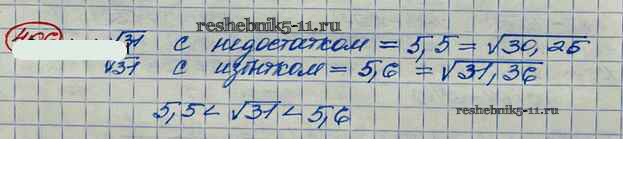 reshebnik5-11.ru
√31 с недостатком = 5,5 = √30,25
√31 с избытком = 5,6 = √31,36
5,5 < √31 < 5,6
reshebnik-5-11.ru